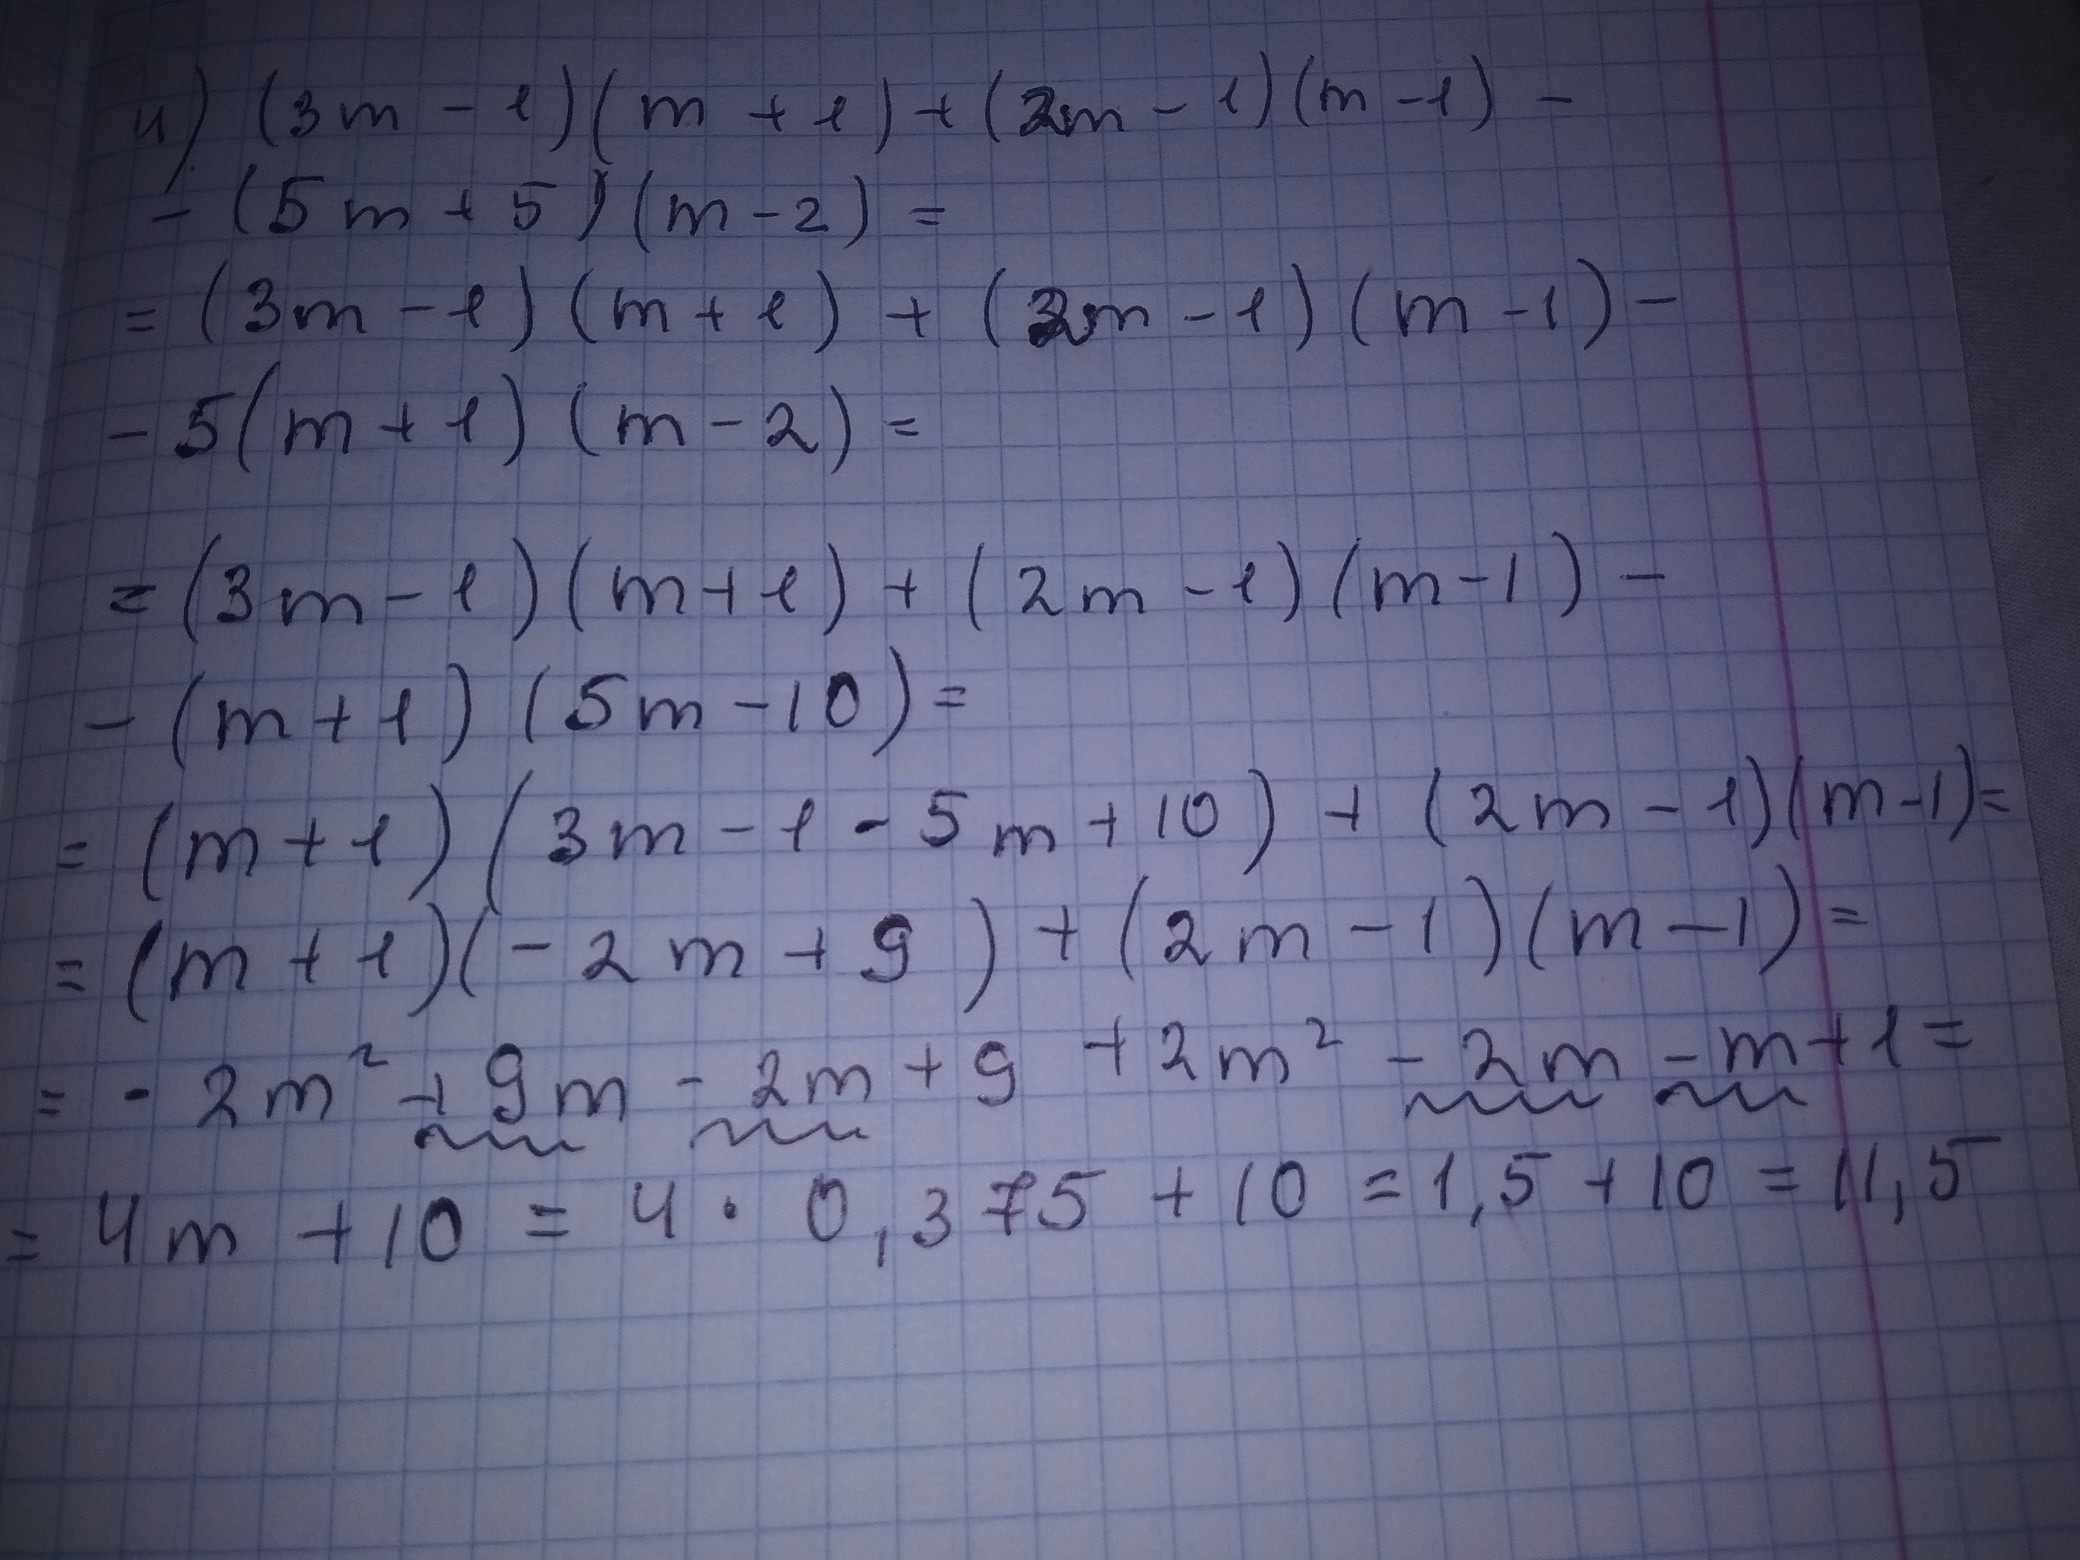 4) (3m - 1)(m + 1) + (2m - 1)(m - 1) -
- (5m + 5)(m - 2) =
= (3m - 1)(m + 1) + (2m - 1)(m - 1) -
- 5(m + 1)(m - 2) =
= (3m - 1)(m + 1) + (2m - 1)(m - 1) -
- (m + 1)(5m - 10) =
= (m + 1)(3m - 1 - 5m + 10) + (2m - 1)(m - 1) =
= (m + 1)(- 2m + 9) + (2m - 1)(m - 1) =
= - 2m² + 9m - 2m + 9 + 2m² - 2m - m + 1 =
= 4m + 10 = 4 · 0,375 + 10 = 1,5 + 10 = 11,5